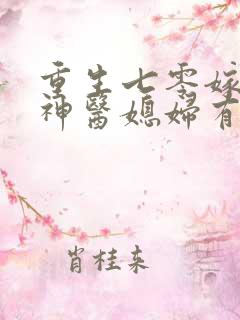 重生七零嫁
神醫媳婦有
肖桂来